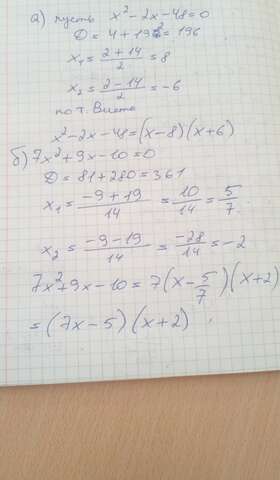 а) пусть x²-2x-48=0
D = 4+192=196
x₁ = (2+14)/2 = 8
x₂ = (2-14)/2 = -6
по т. Виета
x²-2x-48=(x-8)(x+6)
б) 7x²+9x-10=0
D = 81+280=361
x₁ = (-9+19)/14 = 10/14 = 5/7
x₂ = (-9-19)/14 = -28/14 = -2
7x²+9x-10 = 7(x-5/7)(x+2)
=(7x-5)(x+2)